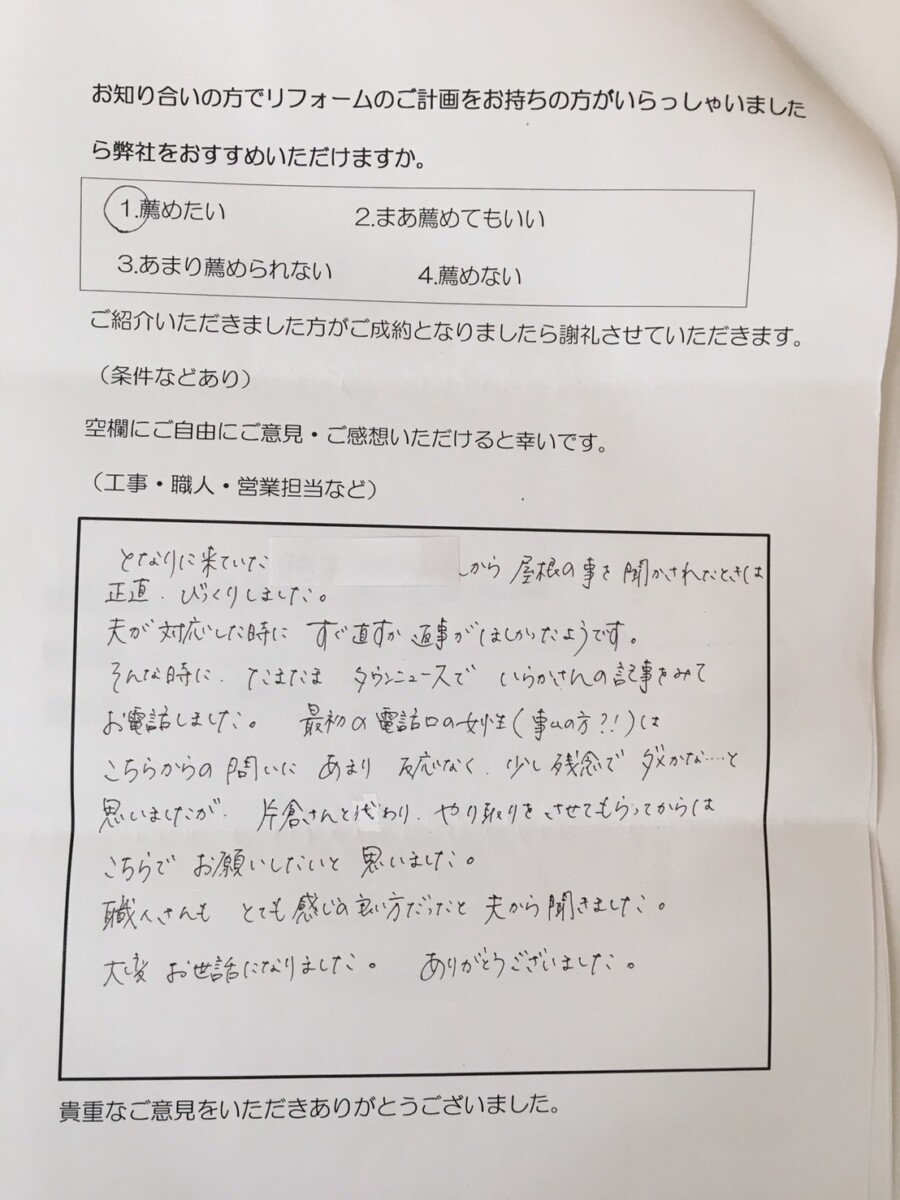 お知り合いの方でリフォームのご計画をお持ちの方がいらっしゃいました
ら弊社をおすすめいただけますか。
1.薦めたい 2.まあ薦めてもいい
3.あまり薦められない 4.薦めない
ご紹介いただきました方がご成約となりましたら謝礼させていただきます。
（条件などあり）
空欄にご自由にご意見・ご感想いただけると幸いです。
（工事・職人・営業担当など）
となりに来ていた から 屋根の事を聞かされたときは
正直、びっくりしました。
夫が対応した時に すぐ直すか 返事がほしかったようです。
そんな時に、たまたま タウンニュースで いらかさんの記事をみて
お電話しました。 最初の電話口の女性（事ムの方?!）は
こちらからの問いに あまり 反応なく、少し残念で ダメかな…と
思いましたが、片倉さんと代わり、やり取りをさせてもらってからは
こちらで お願いしたいと 思いました。
職人さんも とても感じの良い方だったと 夫から聞きました。
大変 お世話になりました。 ありがとうございました。
貴重なご意見をいただきありがとうございました。